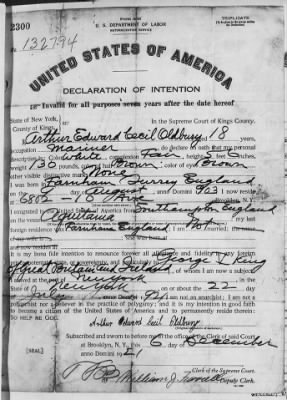 2300
U. S. DEPARTMENT OF LABOR
NATURALIZATION SERVICE
DUPLICATE
132794
UNITED STATES OF AMERICA
DECLARATION OF INTENTION
Invalid for all purposes seven years after the date hereof
State of New York,
County of Kings,
In the Supreme Court of Kings County.
Arthur Edward Cecil Oldbury, 18 years,
occupation Mariner do declare on oath that my personal
description is: Color White, complexion Fair, height 5 feet 6 inches,
weight 130 pounds, color of hair Brown, color of eyes Brown
other visible distinctive marks None
I was born in Farnham Surrey England
day of August anno Domini 903 I now reside
at 6802 - 10 Ave Brooklyn, N. Y.
I emigrated to the United States of America from Southampton England
on the vessel Aquitania
foreign residence was Farnham England, I am not
It is my bona fide intention to renounce forever all allegiance and fidelity to any foreign
George V King
of Great Britain and Ireland of whom I am now a subject
I arrived at the port of New York
State of New York on or about the 22 day
anno Domini 1921 I am not an anarchist: I am not a
polygamist nor a believer in the practice of polygamy; and it is my intention in good faith
to become a citizen of the United States of America and to permanently reside therein:
SO HELP ME GOD.
Arthur Edward Cecil Oldbury
Subscribed and sworn to before me in the office of the Clerk of said Court
at Brooklyn, N. Y. this 6 day of December
anno Domini 1921
[SEAL]
Clerk of the Supreme Court.
Deputy Clerk.